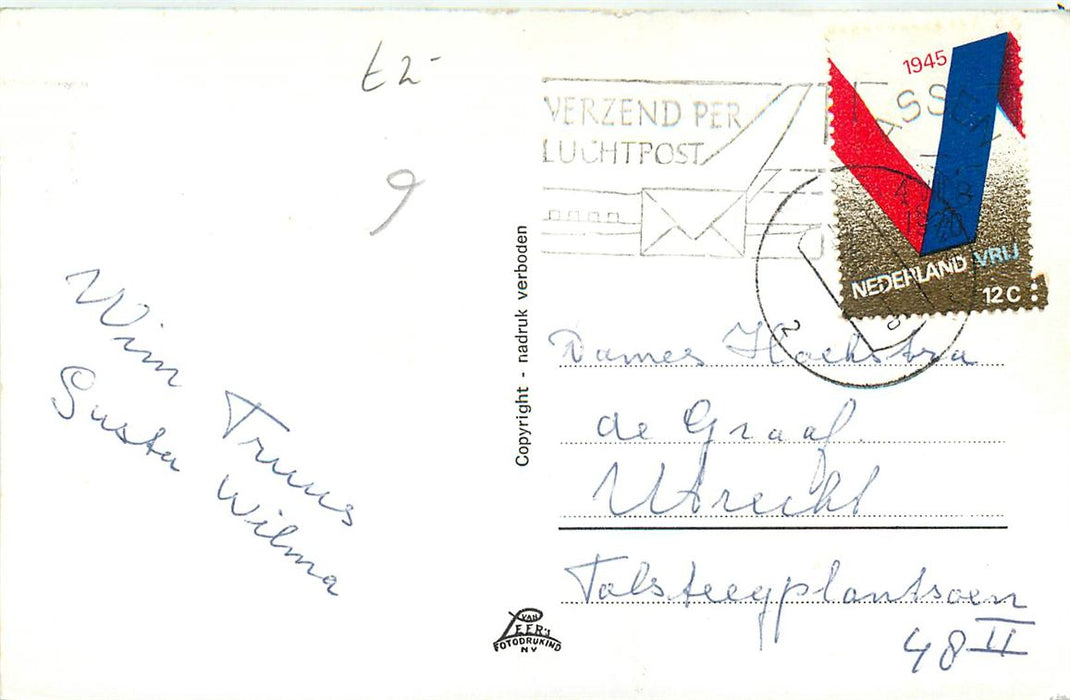 £2-
9
Wim Truus
Susta Wilma
Copyright - nadruk verboden
VAN
LEER'S
FOTODRUKIND
NV
VERZEND PER
LUCHTPOST
ASSEN
1970
1945
NEDERLAND VRIJ
12C
Dames Hoekstra
de Graaf.
Utrecht
Tolsteegplantsoen
48 II